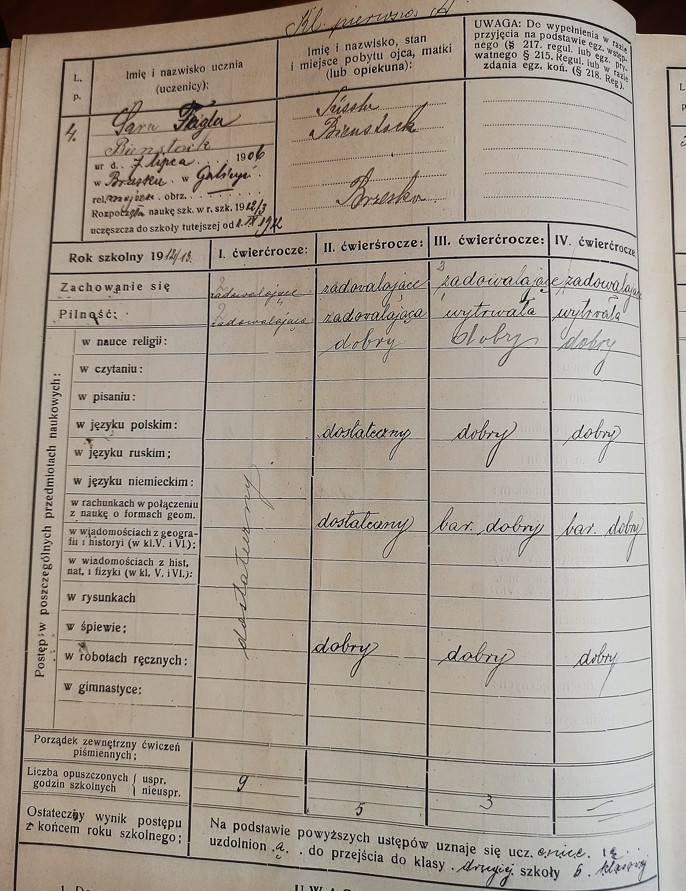 Kl. pierwsza A
L. p.
Imię i nazwisko ucznia (uczenicy):
Imię i nazwisko, stan i miejsce pobytu ojca, matki (lub opiekuna):
UWAGA: Do wypełnienia w razie
przyjęcia na podstawie egz. wstęp-
nego (§ 217. regul. lub egz. pry-
watnego § 215. Regul. lub w razie
zdania egz. koń. (§ 218. Reg).
4.
Sara Fagla
Bienstock
ur d. 7 lipca 1906
w Brzesku w Galicyi
rel. mojżesz. obrz.
Rozpoczęła naukę szk. w r. szk. 1912/3
uczęszcza do szkoły tutejszej od 2. IX 1912
Bienstock
Brzesko
Rok szkolny 1912/13. I. ćwierćrocze: II. ćwierśrocze: III. ćwierćrocze: IV. ćwierćrocze
Zachowanie się zadowalające zadowalające zadowalające zadowalające
Pilność: zadowalająca zadowalająca wytrwała wytrwała
Postęp w poszczególnych przedmiotach naukowych:
dostateczny
w nauce religii: dobry dobry dobry
w czytaniu:
w pisaniu:
w języku polskim: dostateczny dobry dobry
w języku ruskim;
w języku niemieckim:
w rachunkach w połączeniu
z nauką o formach geom. dostateczny bar. dobry bar. dobry
w wiadomościach z geogra-
fii i historyi (w kl. V. i VI.):
w wiadomościach z hist.
nat. i fizyki (w kl. V. i VI.):
w rysunkach
w śpiewie;
w robotach ręcznych: dobry dobry dobry
w gimnastyce:
Porządek zewnętrzny ćwiczeń
piśmiennych;
Liczba opuszczonych godzin szkolnych
uspr. 9
nieuspr. 5 3 —
Ostateczny wynik postępu
z końcem roku szkolnego;
Na podstawie powyższych ustępów uznaje się ucz. enicę
uzdolnion ą do przejścia do klasy drugiej szkoły 6. klasowej
UWAG